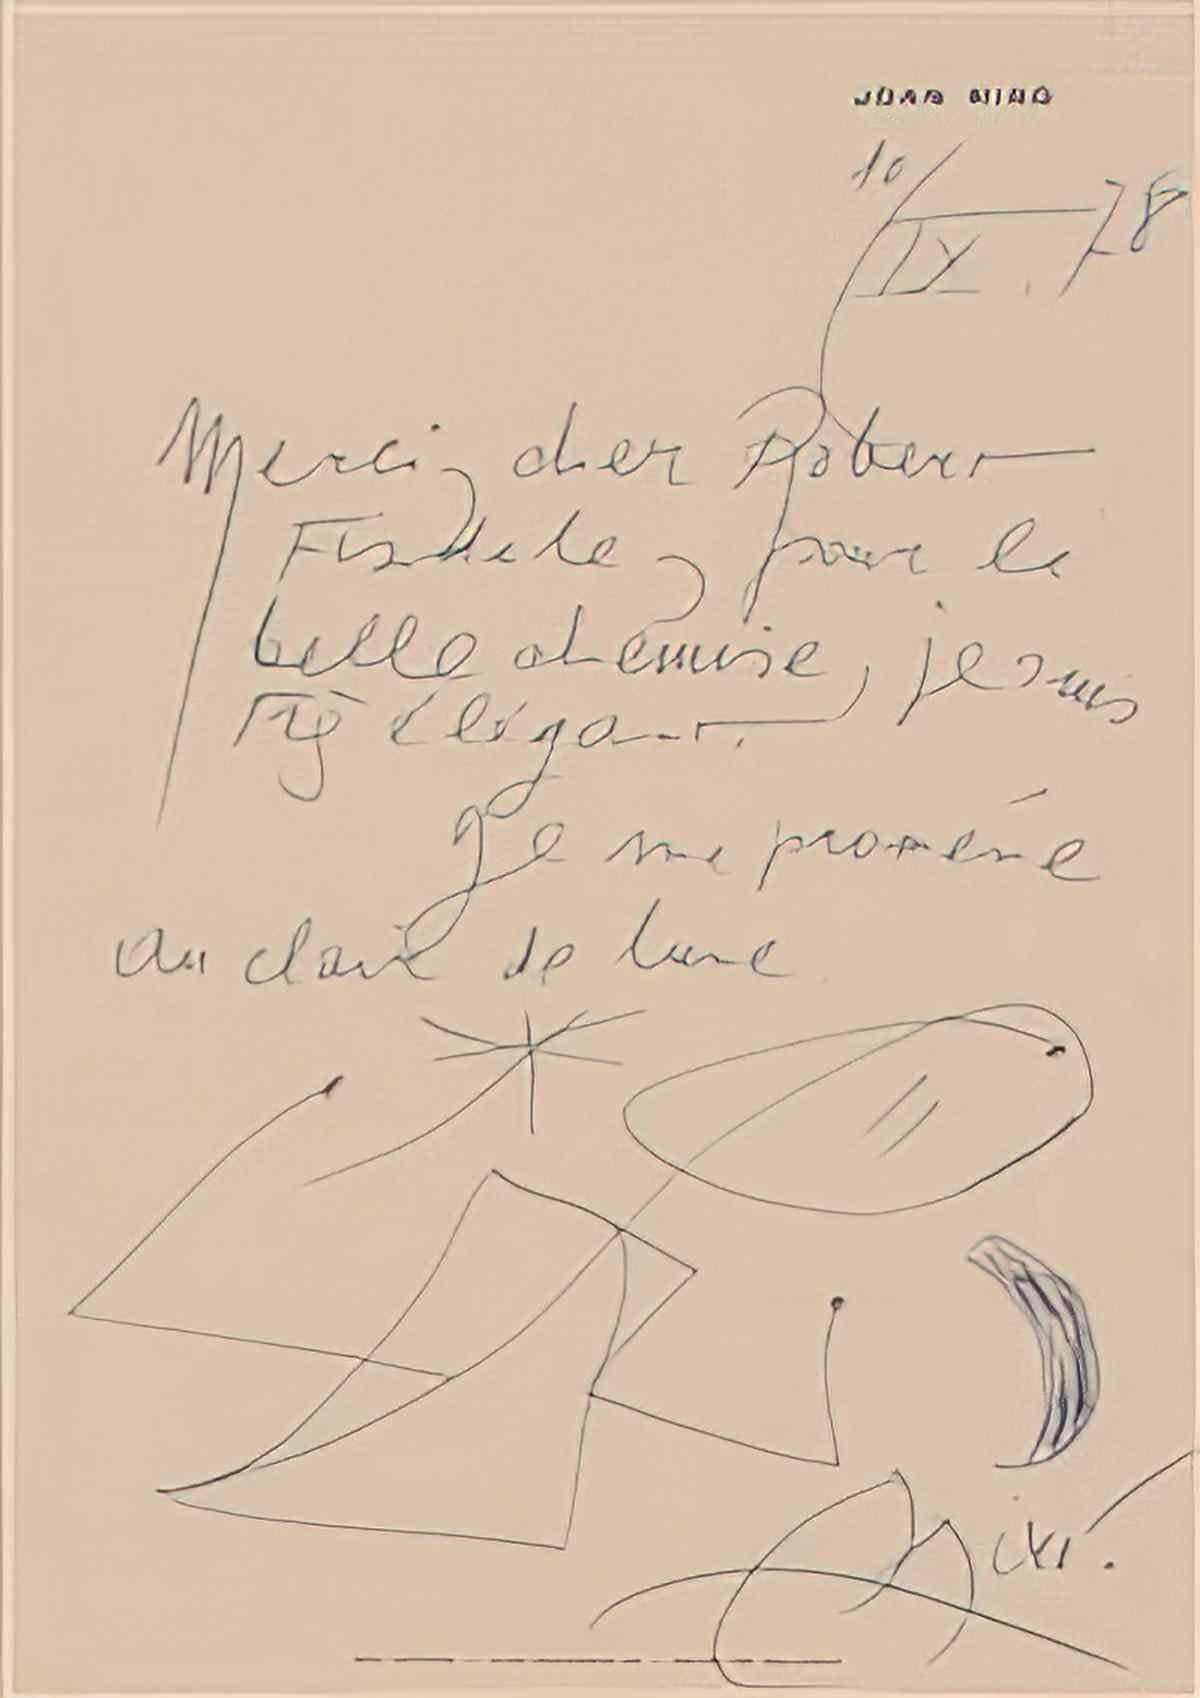 JOAN MIRÓ
10/IX.78
Merci, cher Robert
pour la
belle chemise, je suis
très élégant.
Je me promène
au clair de lune
Miró.